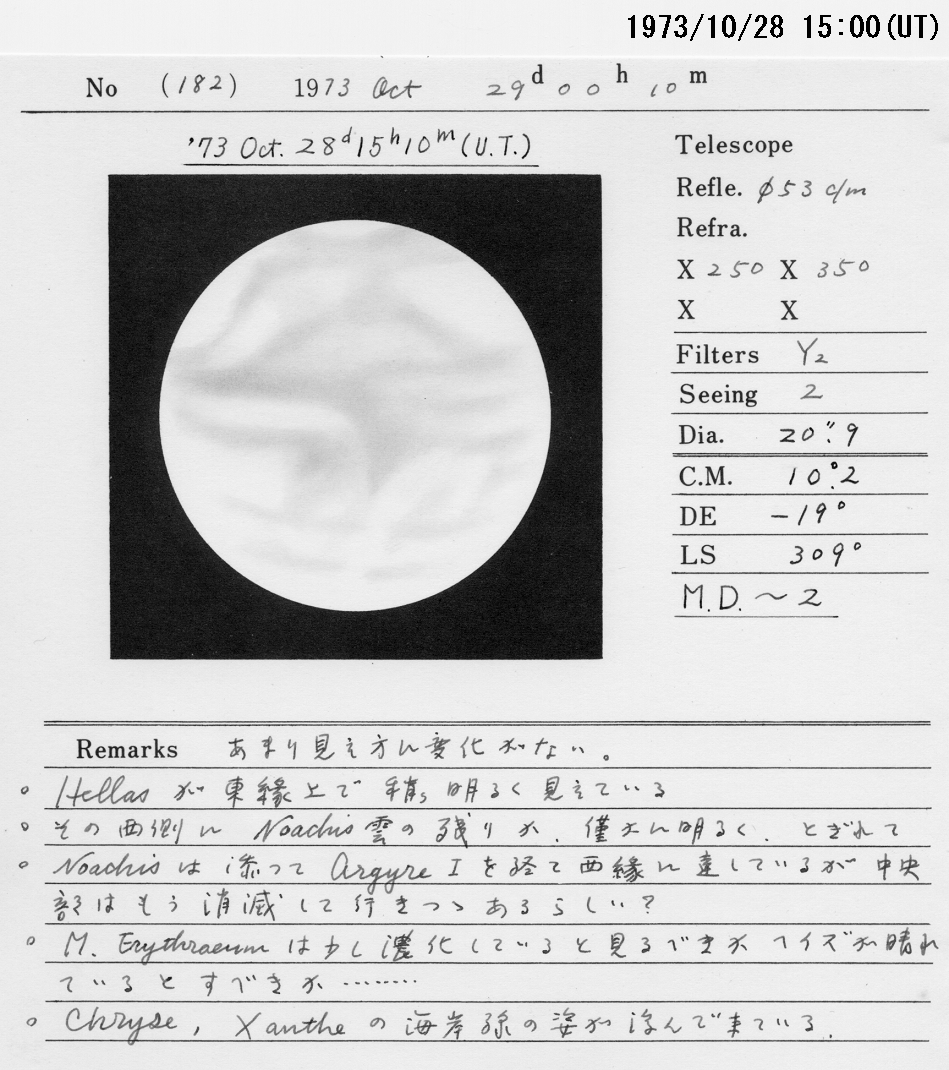 1973/10/28 15:00(UT)
No (182) 1973 Oct 29d 00h 10m
'73 Oct. 28d 15h 10m (U.T.)
Telescope
Refle. φ53 c/m
Refra.
X 250 X 350
X X
Filters Y2
Seeing 2
Dia. 20".9
C.M. 10°.2
DE -19°
LS 309°
M.D. ~2
Remarks あまり見え方に変化がない。
○ Hellas が東縁上で稍々明るく見えている
○ その西側に Noachis 雲の残りが、僅かに明るく、とぎれて
○ Noachis は添って Argyre I を経て西縁に達しているが中央
部はもう消滅して行きつゝあるらしい?
○ M. Erythraeum は少し濃化していると見るべきかヘイズが晴れ
ているとすべきか ………
○ Chryse, Xanthe の海岸線の姿が浮んで来ている.